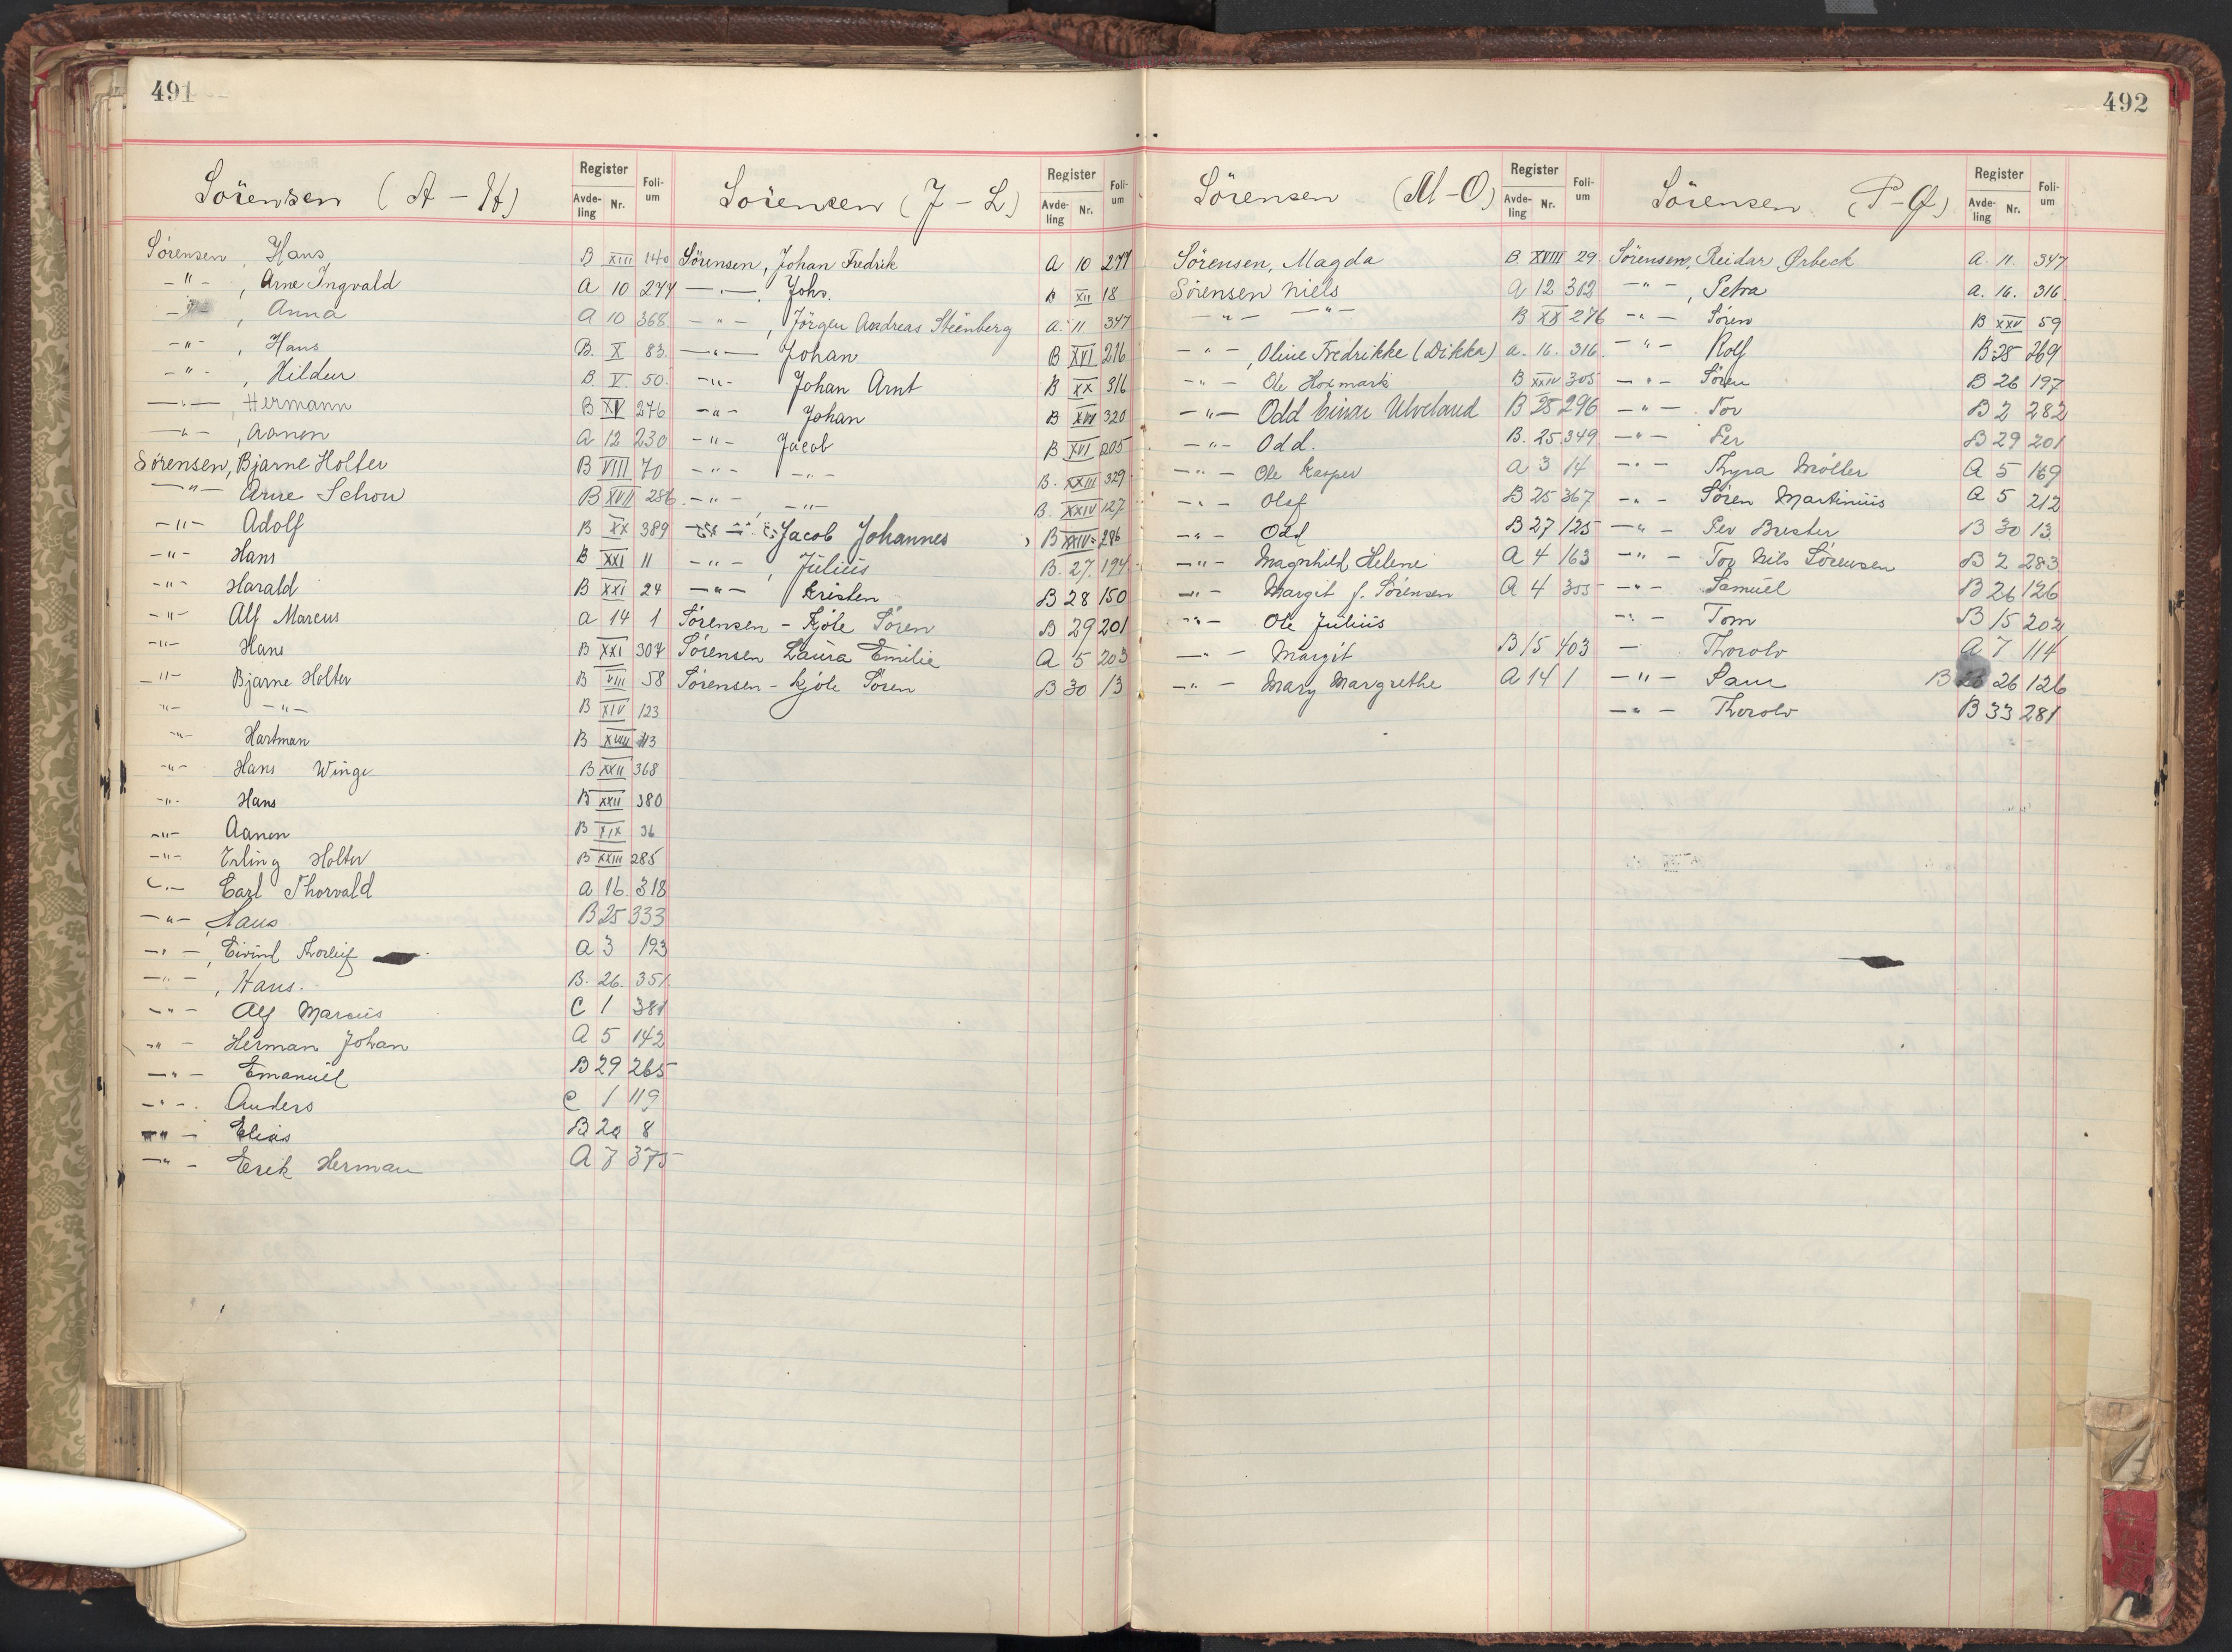 491
Sörensen (A-H)
Register
Avdeling Nr.
Folium
Sörensen, Hans B XIII 140
-"-, Arne Ingvald A 10 274
-"-, Anna A 10 368
-"-, Hans B. X 83
-"-, Hildur B. V. 50.
-"-, Hermann B XV 276
-"-, Aanen A 12 230
Sörensen, Bjarne Holter B VIII 70
-"- Arne Schou B XVII 286
-"- Adolf B XX 389
-"- Hans B XXI 11
-"- Harald B XXI 24
-"- Alf Marcus A 14 1
-"- Hans B XXI 307
-"- Bjarne Holter B VIII 58
-"- -"- B XIV 123
-"- Hartman B XVIII 313
-"- Hans Winge B XXII 368
-"- Hans B XXII 380
-"- Aanen B XIX 36
-"- Erling Holter B XXIII 285
-"- Carl Thorvald A 16 318
-"- Hans B 25 333
-"-, Eivind Thorleif A 3 193
-"-, Hans. B. 26. 351
-"- Alf Marcus C 1 381
-"- Herman Johan A 5 142
-"- Emanuel B 29 265
-"-. Anders C 1 119
-"- Elias B 20 8
-"- Erik Herman A 7 375
Sörensen (J-L)
Register
Avdeling Nr.
Folium
Sörensen, Johan Fredrik A 10 277
-"-, Johs. B XII 18
-"-, Jörgen Andreas Steenberg A. 11 347
-"- Johan B XVI 216
-"- Johan Arnt B XX 316
-"- Johan B XVII 320
-"- Jacob B XVI 205
-"- -"- B. XXIII 329
-"- -"- B. XXIV 127
-"- Jacob Johannes B XXIV 286
-"-, Julius B. 27. 194
-"- Kristen B 28 150
Sørensen - Kjöle Sören B 29 201
Sørensen Laura Emilie A 5 203
Sørensen - Kjöle Sören B 30 13
492
Sörensen (M-O)
Register
Avdeling Nr.
Folium
Sörensen, Magda B. XVIII 29.
Sörensen Niels A 12 302
-"- -"- B XX 276
-"-, Oline Fredrikke (Dikka) A. 16. 316.
-"- Ole Hoxmark B XXIV 305
-"- Odd Einar Ulveland B 25 296
-"- Odd. B. 25 349
-"- Ole Kasper A 3 14
-"- Olaf B 25 367
-"- Odd B 27 125
-"- Magnhild Helene A 4 163
-"- Margit f. Sørensen A 4 355
-"- Ole Julius
-"- Margit B 15 403
-"- Mary Margrethe A 14 1
Sörensen (P-Ø)
Register
Avdeling Nr.
Folium
Sörensen, Reidar Ørbeck A. 11. 347
-"-, Petra A. 16. 316.
-"- Sören B XXV 59
-"- Rolf B 25 269
-"- Sören B 26 197
-"- Tor B 2 282
-"- Per B 29 201
-"- Thyra Möller A 5 169
-"- Sören Martinius A 5 212
-"- Per Brester B 30 13
-"- Tor Nils Sörensen B 2 283
-"- Samuel B 26 126
-"- Tom B 15 202
- Thorolv A 7 114
-"- Sam B 26 126
-"- Thorolv B 33 281